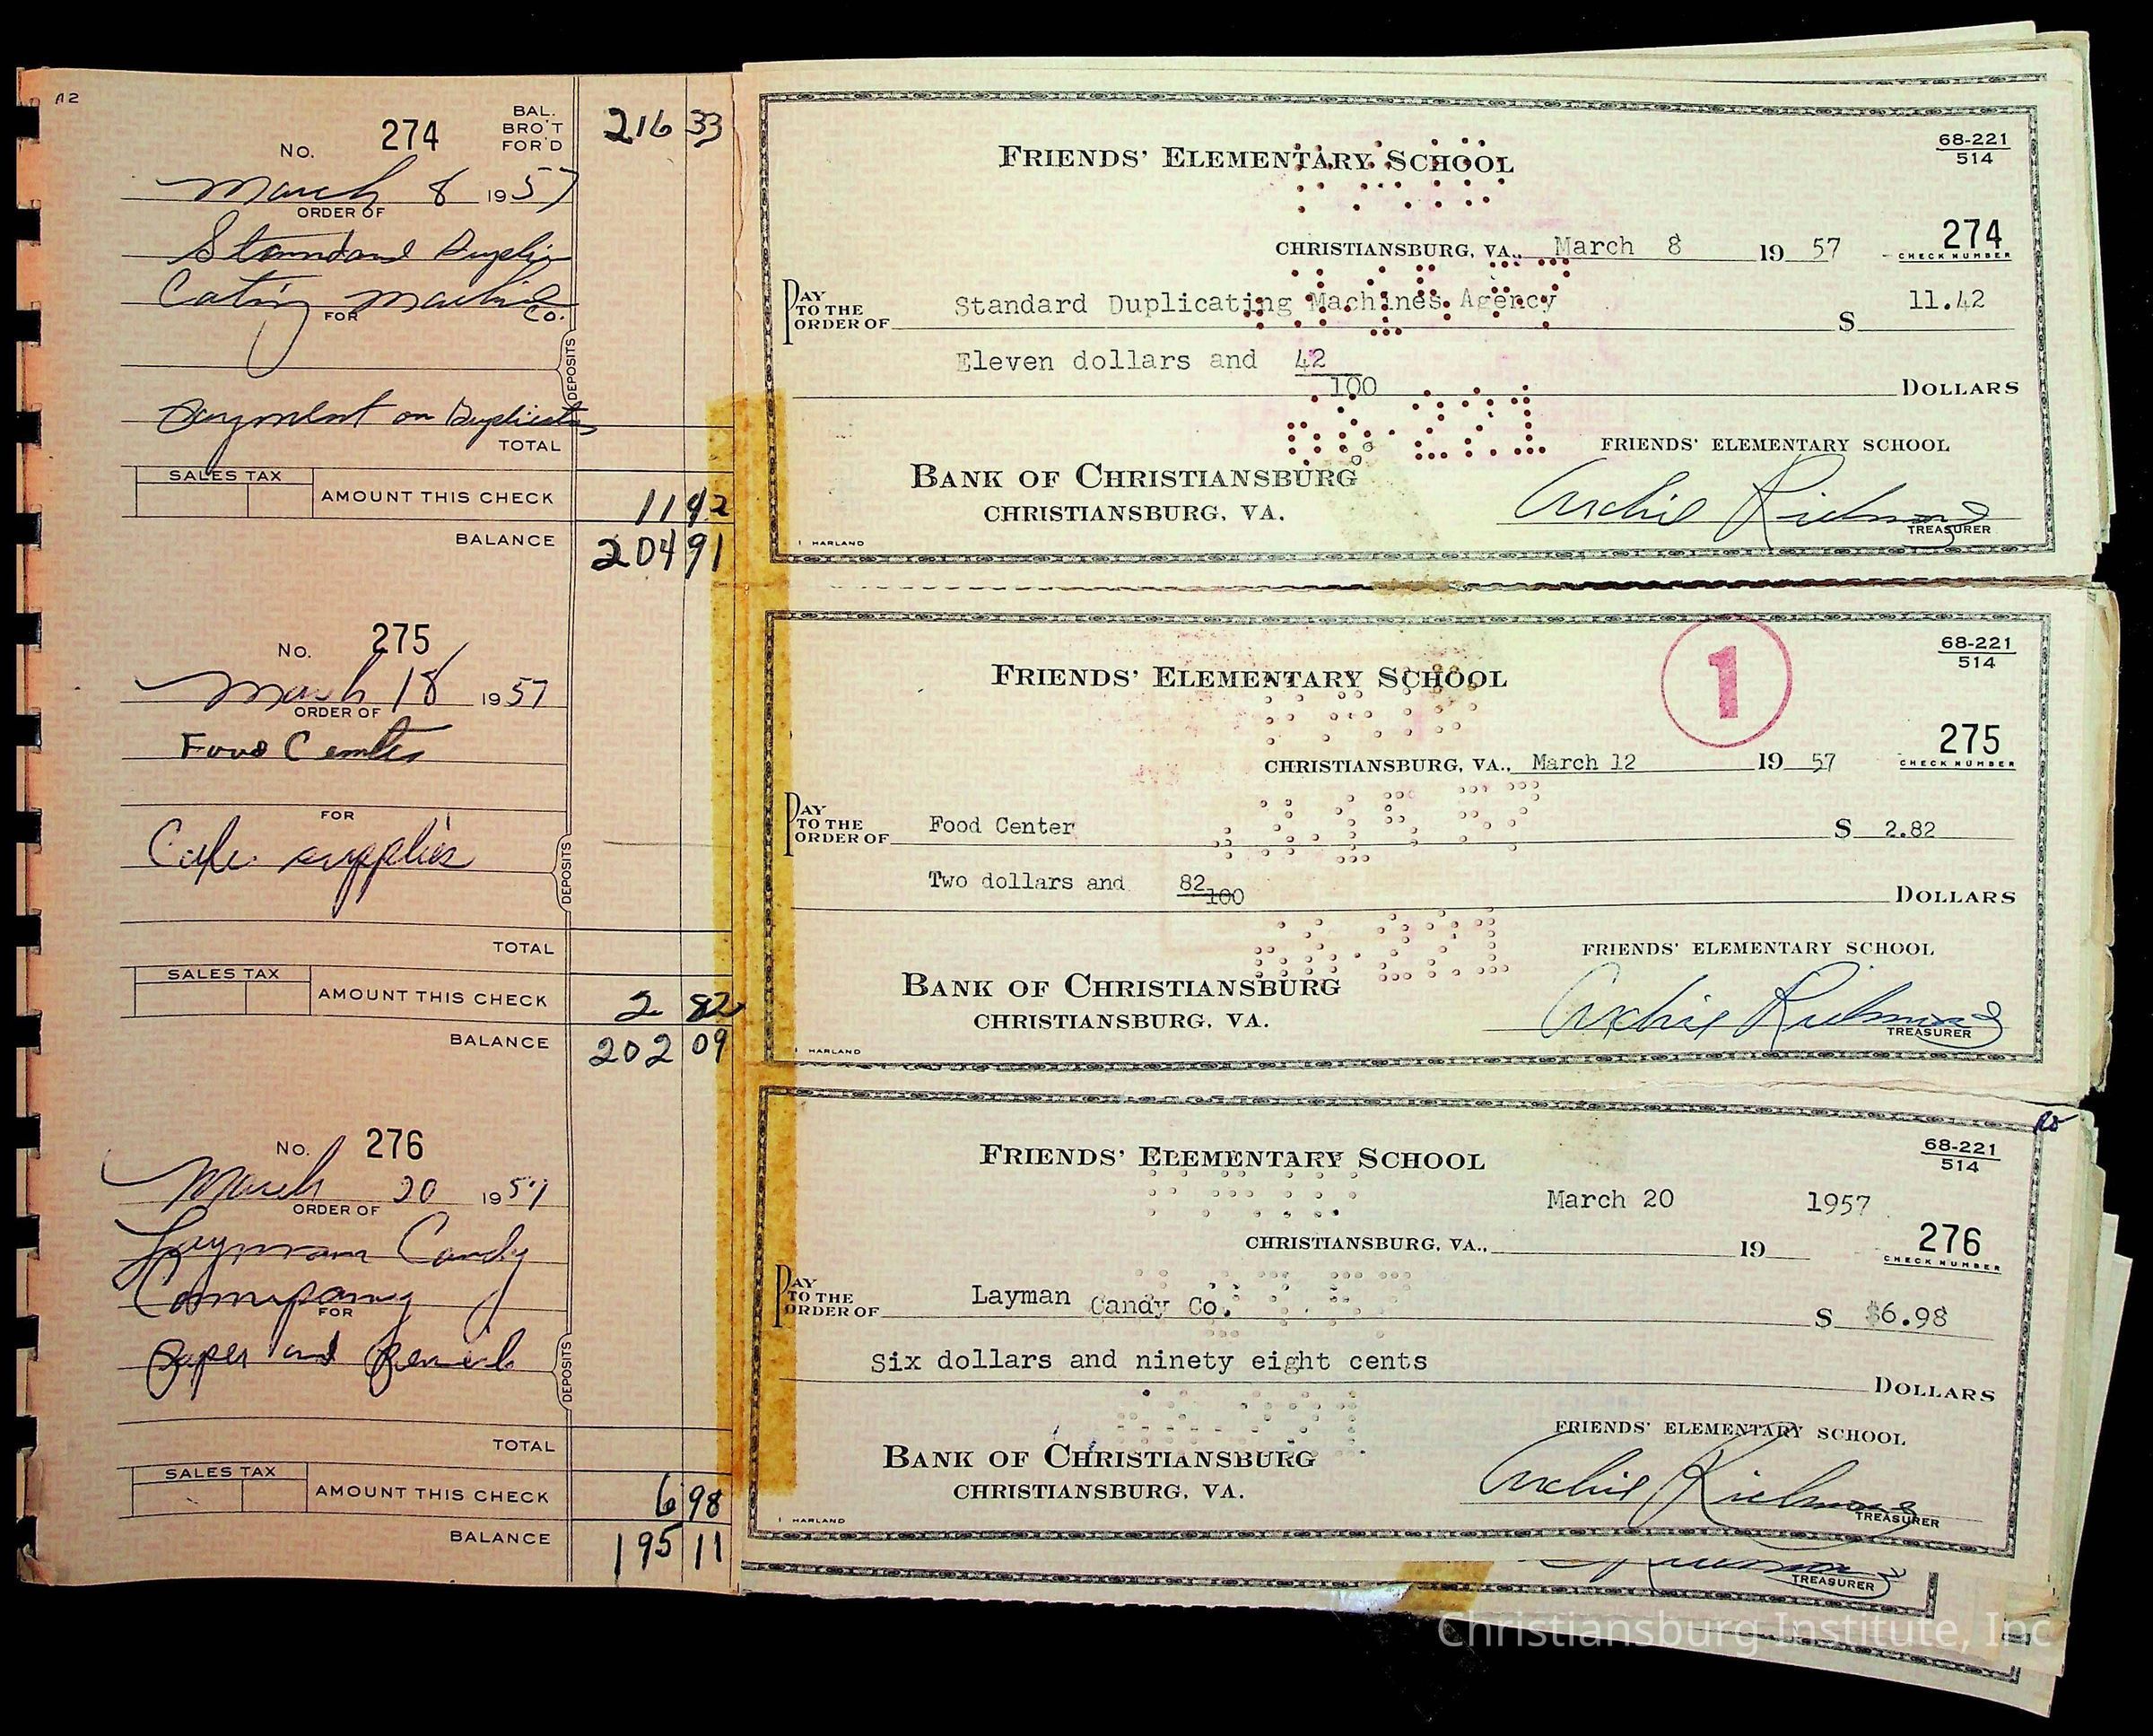 A2
No. 274 BAL. BRO'T FOR'D 216 33
March 8 1957
ORDER OF
Stanndard Dupli
Cating Machine Co.
FOR
DEPOSITS
Payment on Duplicator
TOTAL
SALES TAX AMOUNT THIS CHECK 11 42
BALANCE 204 91
No. 275
March 18 1957
ORDER OF
Food Center
FOR
Cafe. supplies
DEPOSITS
TOTAL
SALES TAX AMOUNT THIS CHECK 2 82
BALANCE 202 09
No. 276
March 20 1957
ORDER OF
Laymam Candy
Commpany
FOR
Paper and Pencil
DEPOSITS
TOTAL
SALES TAX AMOUNT THIS CHECK 6 98
BALANCE 195 11
FRIENDS' ELEMENTARY SCHOOL 68-221
514
CHRISTIANSBURG, VA., March 8 19 57 274
CHECK NUMBER
PAY TO THE ORDER OF Standard Duplicating Machines Agency $ 11.42
Eleven dollars and 42/100 DOLLARS
FRIENDS' ELEMENTARY SCHOOL
BANK OF CHRISTIANSBURG
CHRISTIANSBURG, VA. Archie Richmond
TREASURER
HARLAND
FRIENDS' ELEMENTARY SCHOOL 1 68-221
514
CHRISTIANSBURG, VA., March 12 19 57 275
CHECK NUMBER
PAY TO THE ORDER OF Food Center $ 2.82
Two dollars and 82/100 DOLLARS
FRIENDS' ELEMENTARY SCHOOL
BANK OF CHRISTIANSBURG
CHRISTIANSBURG, VA. Archie Richmond
TREASURER
HARLAND
FRIENDS' ELEMENTARY SCHOOL 68-221
514
March 20 1957
CHRISTIANSBURG, VA., 19 276
CHECK NUMBER
PAY TO THE ORDER OF Layman Candy Co. $ $6.98
Six dollars and ninety eight cents
DOLLARS
FRIENDS' ELEMENTARY SCHOOL
BANK OF CHRISTIANSBURG
CHRISTIANSBURG, VA. Archie Richmond
TREASURER
HARLAND
TREASURER
Christiansburg Institute, Inc